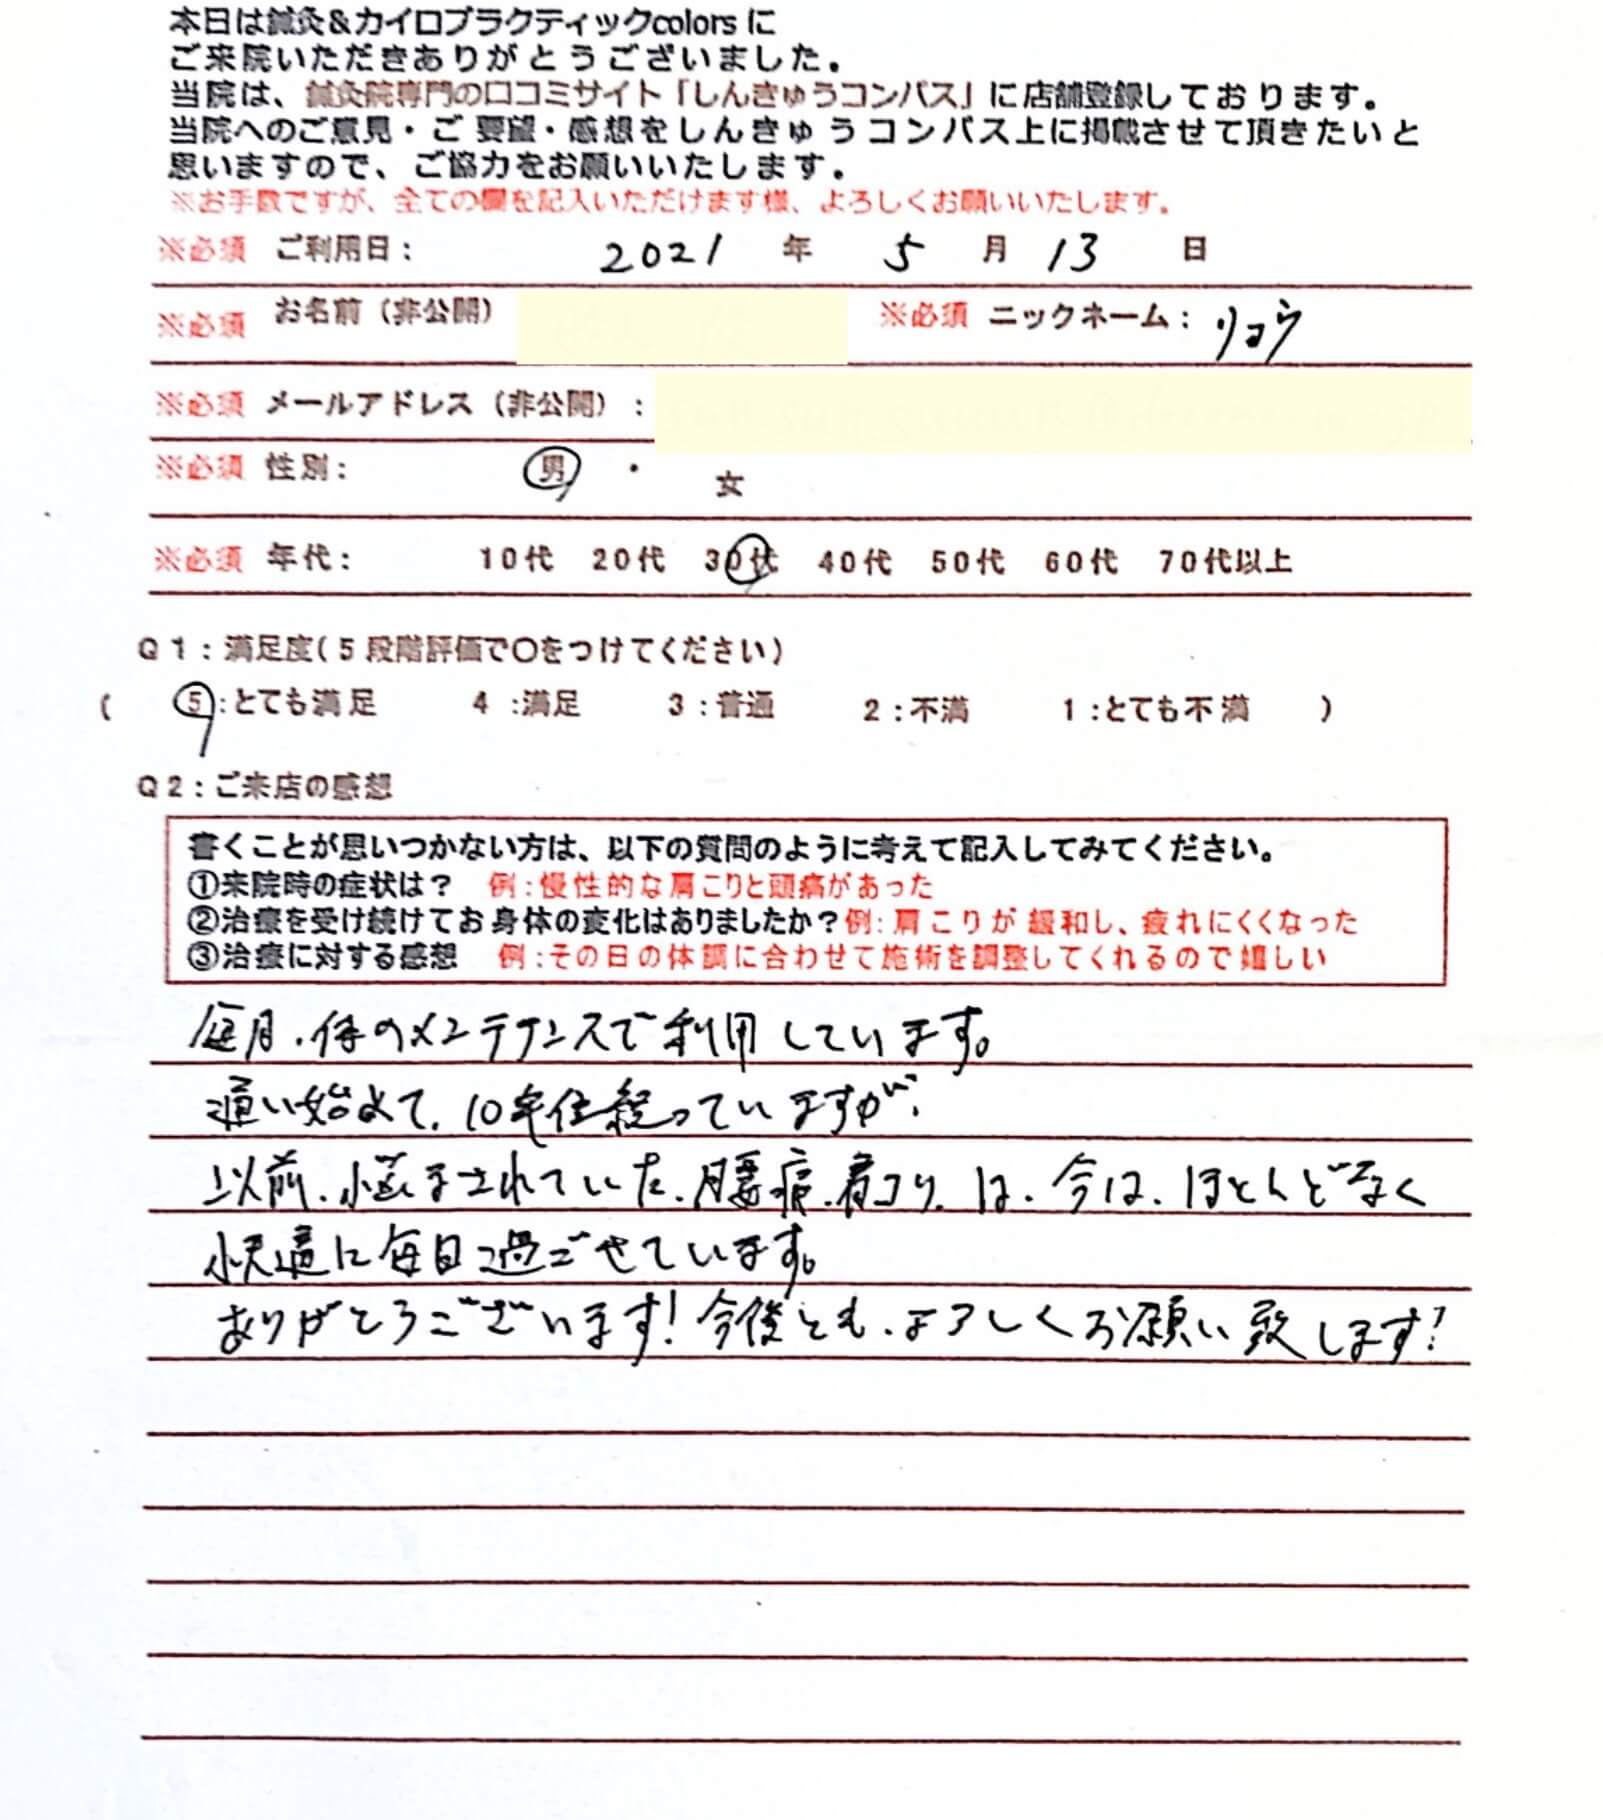 本日は鍼灸&カイロプラクティックcolorsに
ご来院いただきありがとうございました。
当院は、鍼灸院専門の口コミサイト「しんきゅうコンパス」に店舗登録しております。
当院へのご意見・ご要望・感想をしんきゅうコンパス上に掲載させて頂きたいと
思いますので、ご協力をお願いいたします。
※お手数ですが、全ての欄を記入いただけます様、よろしくお願いいたします。
※必須 ご利用日： 2021 年 5 月 13 日
※必須 お名前（非公開） ※必須 ニックネーム： リョウ
※必須 メールアドレス（非公開）：
※必須 性別： 男 ・ 女
※必須 年代： 10代 20代 30代 40代 50代 60代 70代以上
Q1：満足度(5段階評価で〇をつけてください)
( 5:とても満足 4:満足 3:普通 2:不満 1:とても不満 )
Q2：ご来店の感想
書くことが思いつかない方は、以下の質問のように考えて記入してみてください。
①来院時の症状は？ 例：慢性的な肩こりと頭痛があった
②治療を受け続けてお身体の変化はありましたか？例：肩こりが緩和し、疲れにくくなった
③治療に対する感想 例：その日の体調に合わせて施術を調整してくれるので嬉しい
毎月、体のメンテナンスで利用しています。
通い始めて、10年位経っていますが、
以前、悩まされていた、腰痛、肩コリ、は、今は、ほとんどなく
快適に毎日過ごせています。
ありがとうございます！今後とも、よろしくお願い致します！